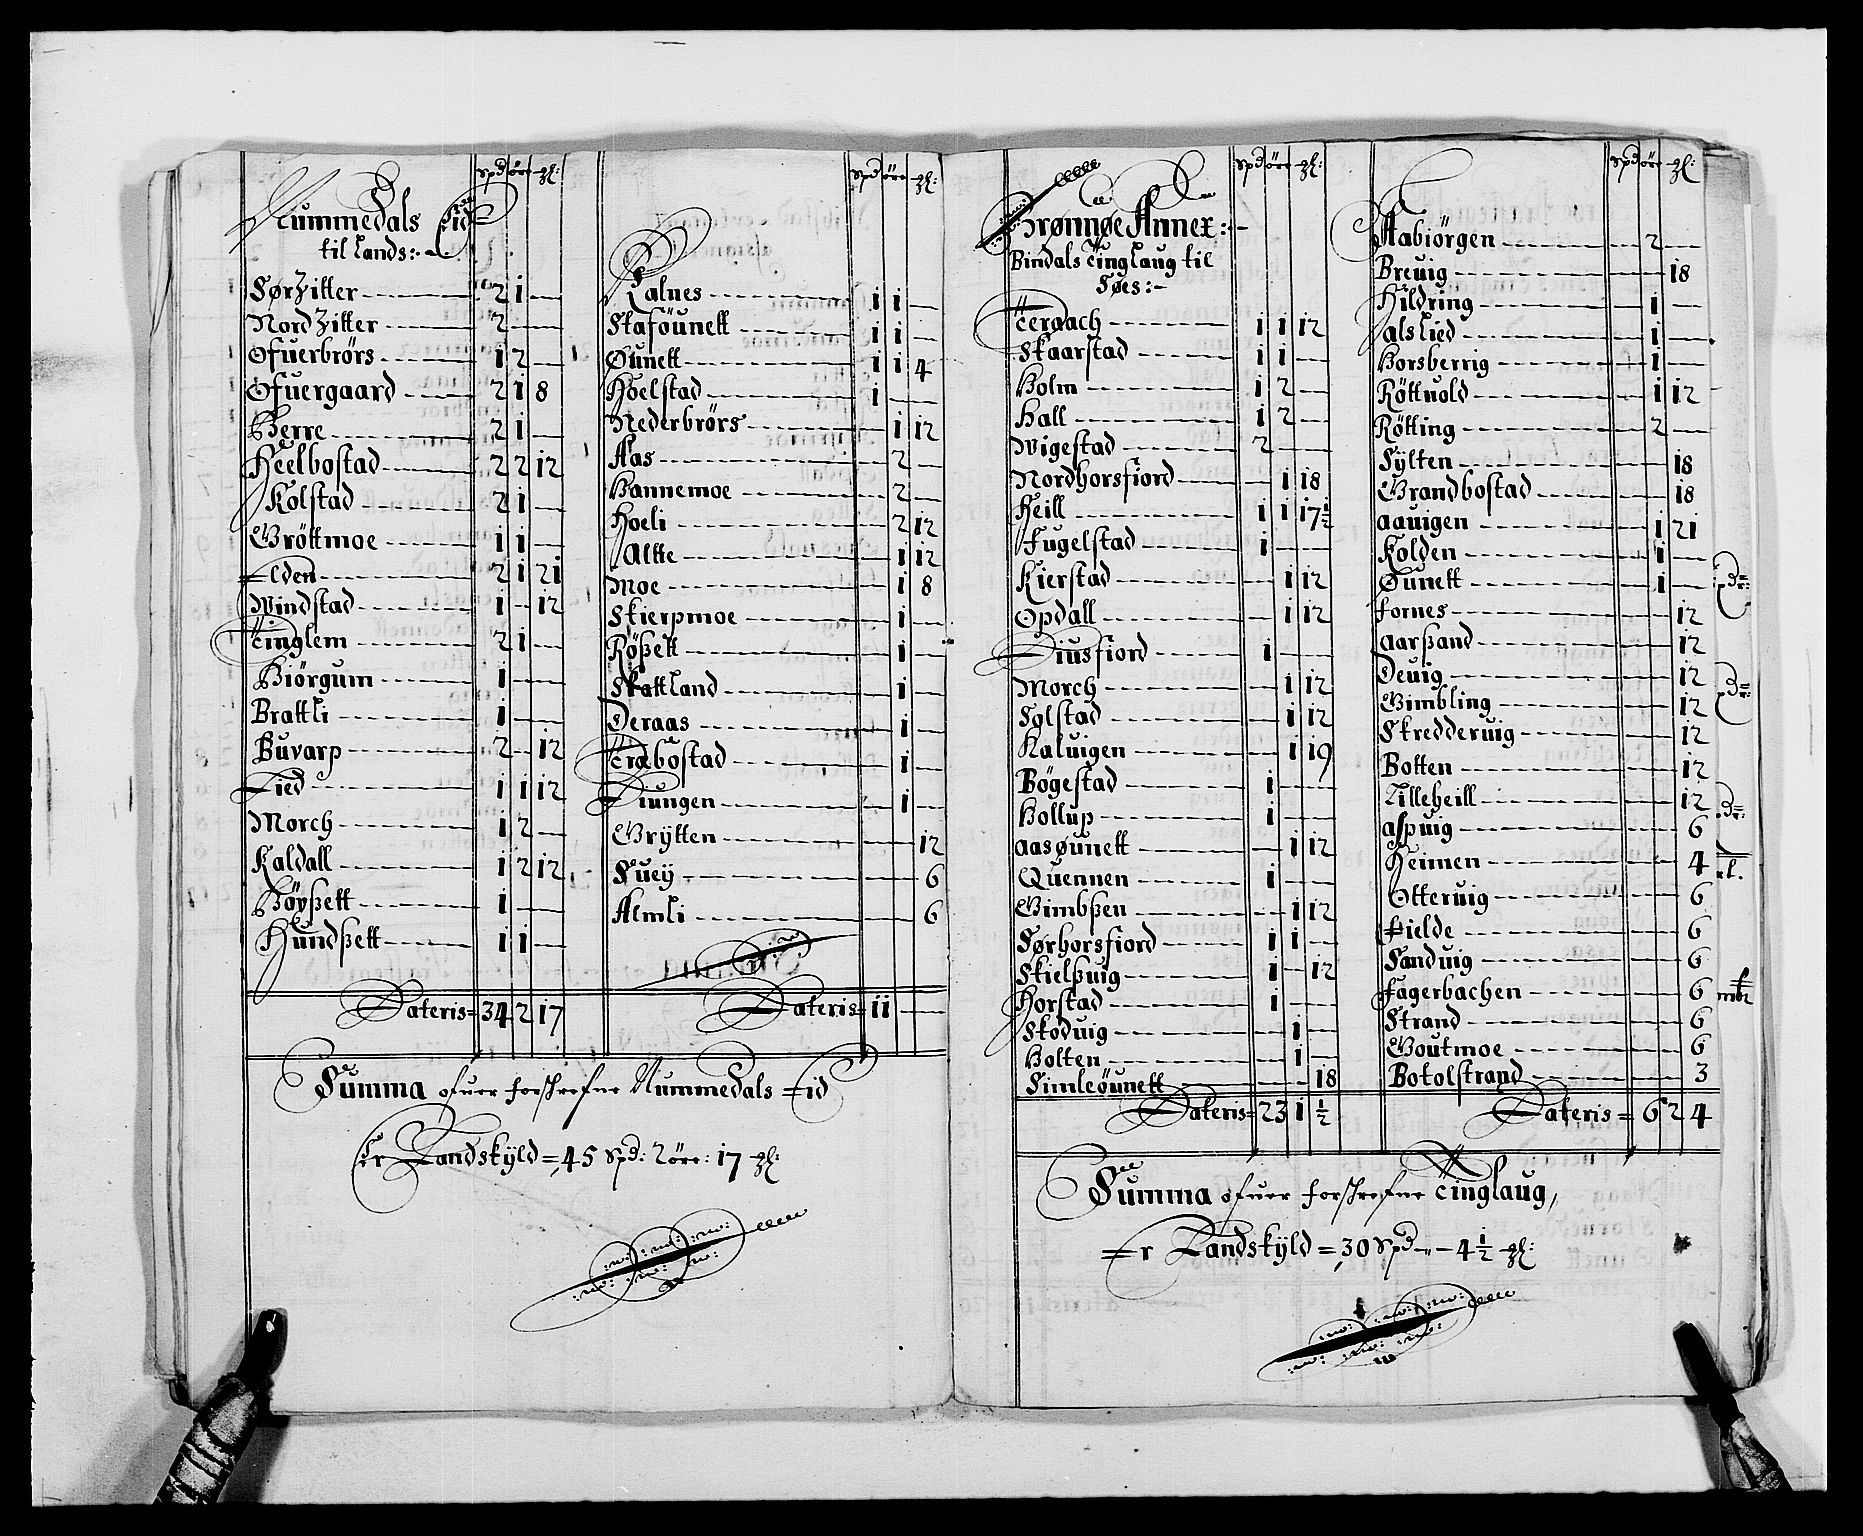 Spd öre gl:
Nummedals Eid
til Lands:
Sørzitter 2 1
Nordzitter 2
Ofuerbrörs 1 2
Ofuergaard 2 1 8
Berre 2 1
Heelbostad 2 2 12
Kolstad 2 1
Gröttmoe 1 1
Elden 2 1 21
Windstad 1 12
Tinglem 2 1
Biörgum 1
Brattli 1
Buvarp 2 12
Lied 1 1 12
Morch 1 2
Kaldall 1 2 12
Böyßett 1
Hundßett 1 1
Lateris 34 2 17
Spd öre gl:
Kalnes 1 1
Staföunett 1 1
Öunett 1 1 4
Hoelstad 1
Nederbrörs 1 12
Aas 2
Bannemoe 2
Hoeli 2 12
Altte 1 12
Moe 1 8
Skierpmoe 1
Rößett 1
Skattland 1
Deraas 1
Træbostad 1
Liungen 1
Grÿtten 12
Suey 6
Aemli 6
Lateris 11
Summa ofuer forschrefne Nummedals Eid
Er Landskÿld = 45 Spd: 2 öre: 17 gl:
Spd öre gl:
Brønnøe Annex:
Bindals Tinglaug til
Søes:
Teraach 1 1 12
Skaarstad 1 1
Holm 1 2
Hall 1 2
Wigestad 2
Nordhorsfiord 1 18
Heill 1 1 17½
Fugelstad 1
Kierstad 1 12
Opdall 1 12
Diusfiord 1
Morch 1 12
Sylstad 1 12
Kaluigen 1 19
Bögestad 1
Hollup 1
Aasøunett 1 12
Quennen 1
Gimbßen 1 12
Sørhorsfiord 1 1
Skielßuig 1 12
Horstad 1
Skoduig 1
Holten 1
Simleöunett 18
Lateris 23 1 ½
Spd öre gl:
Aabiörgen 2
Breuig 18
Hildring 1
Alslied 1
Horsberrig 1
Röttuold 1 12
Rötting 2
Sylten 18
Brandbostad 18
Aauigen 1 21
Kolden 1
Öunett 1
Fornes 12
Aarßand 12
Deuig 12
Gimbling 12
Skredderuig 12
Botten 12
Lilleheill 12
Aspuig 6
Heimen 4
Otteruig 6
Fielde 6
Sanduig 6
Fagerbachen 6
Strand 6
Goutmoe 6
Botolstrand 3
Lateris = 6 2 4
Summa ofuer forschrefne Tinglaug,
Er Landskÿld = 30 Spd - 4½ gl: